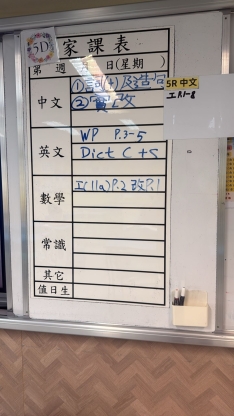 5D
家課表
第 週 日(星期 )
中文
①詞(4)及造句
②實改
5R 中文
工A1-8
英文
WP P.3-5
Dict C +S
數學
工(11a)P.2 改P.1
常識
其它
值日生